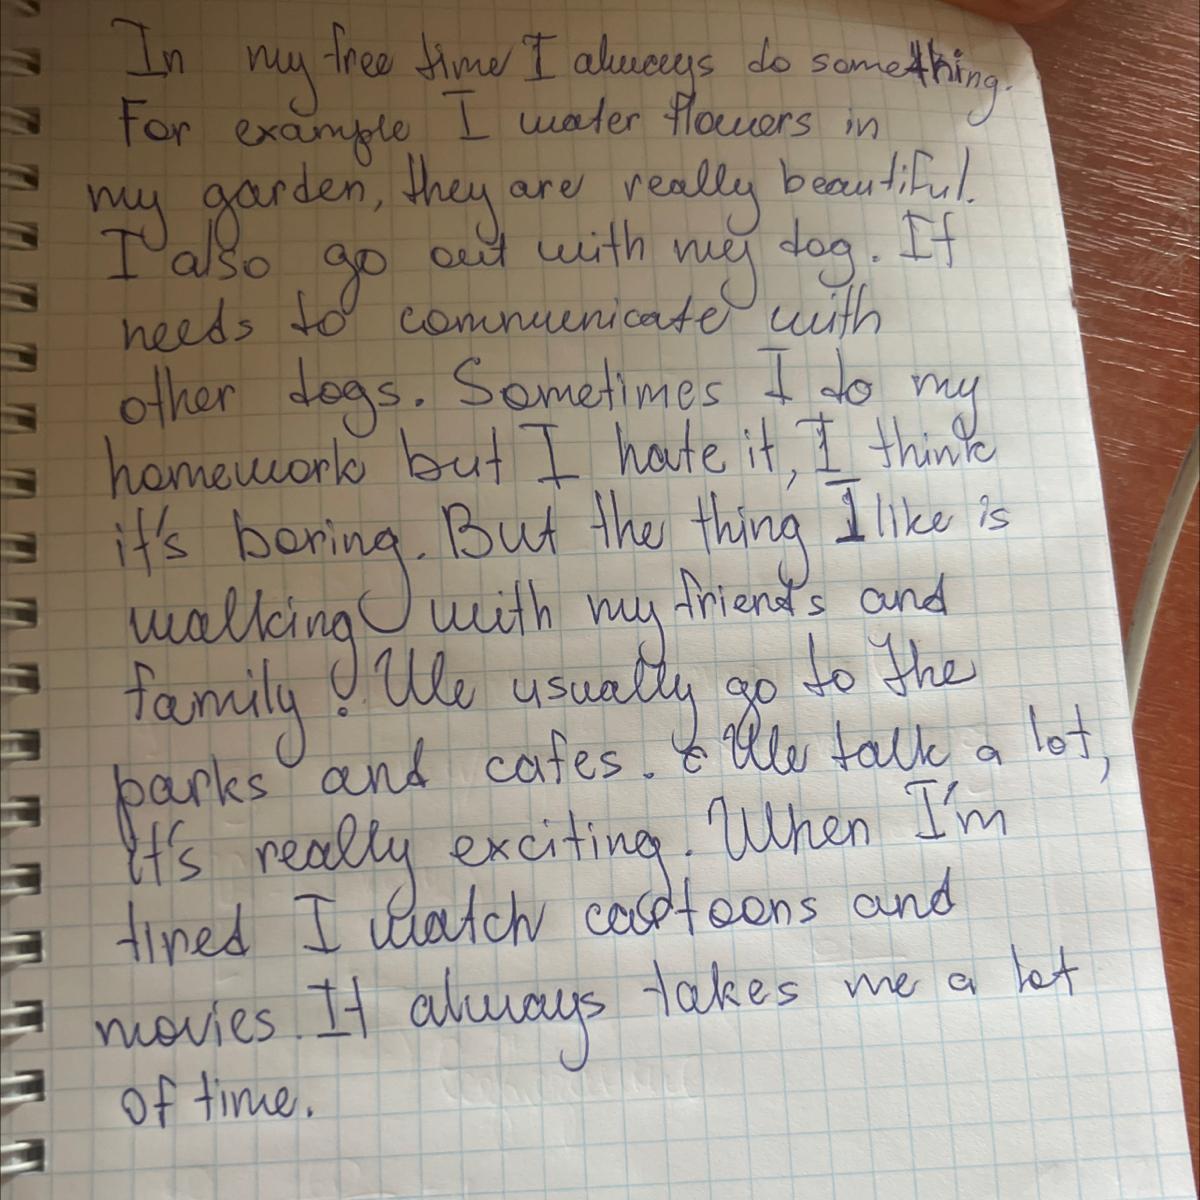 In my free time I always do something.
For example I water flowers in
my garden, they are really beautiful.
I also go out with my dog. It
needs to communicate with
other dogs. Sometimes I do my
homework but I hate it, I think
it's boring. But the thing I like is
walking with my friends and
family! We usually go to the
parks and cafes. We talk a lot,
it's really exciting. When I'm
tired I watch cartoons and
movies. It always takes me a lot
of time.